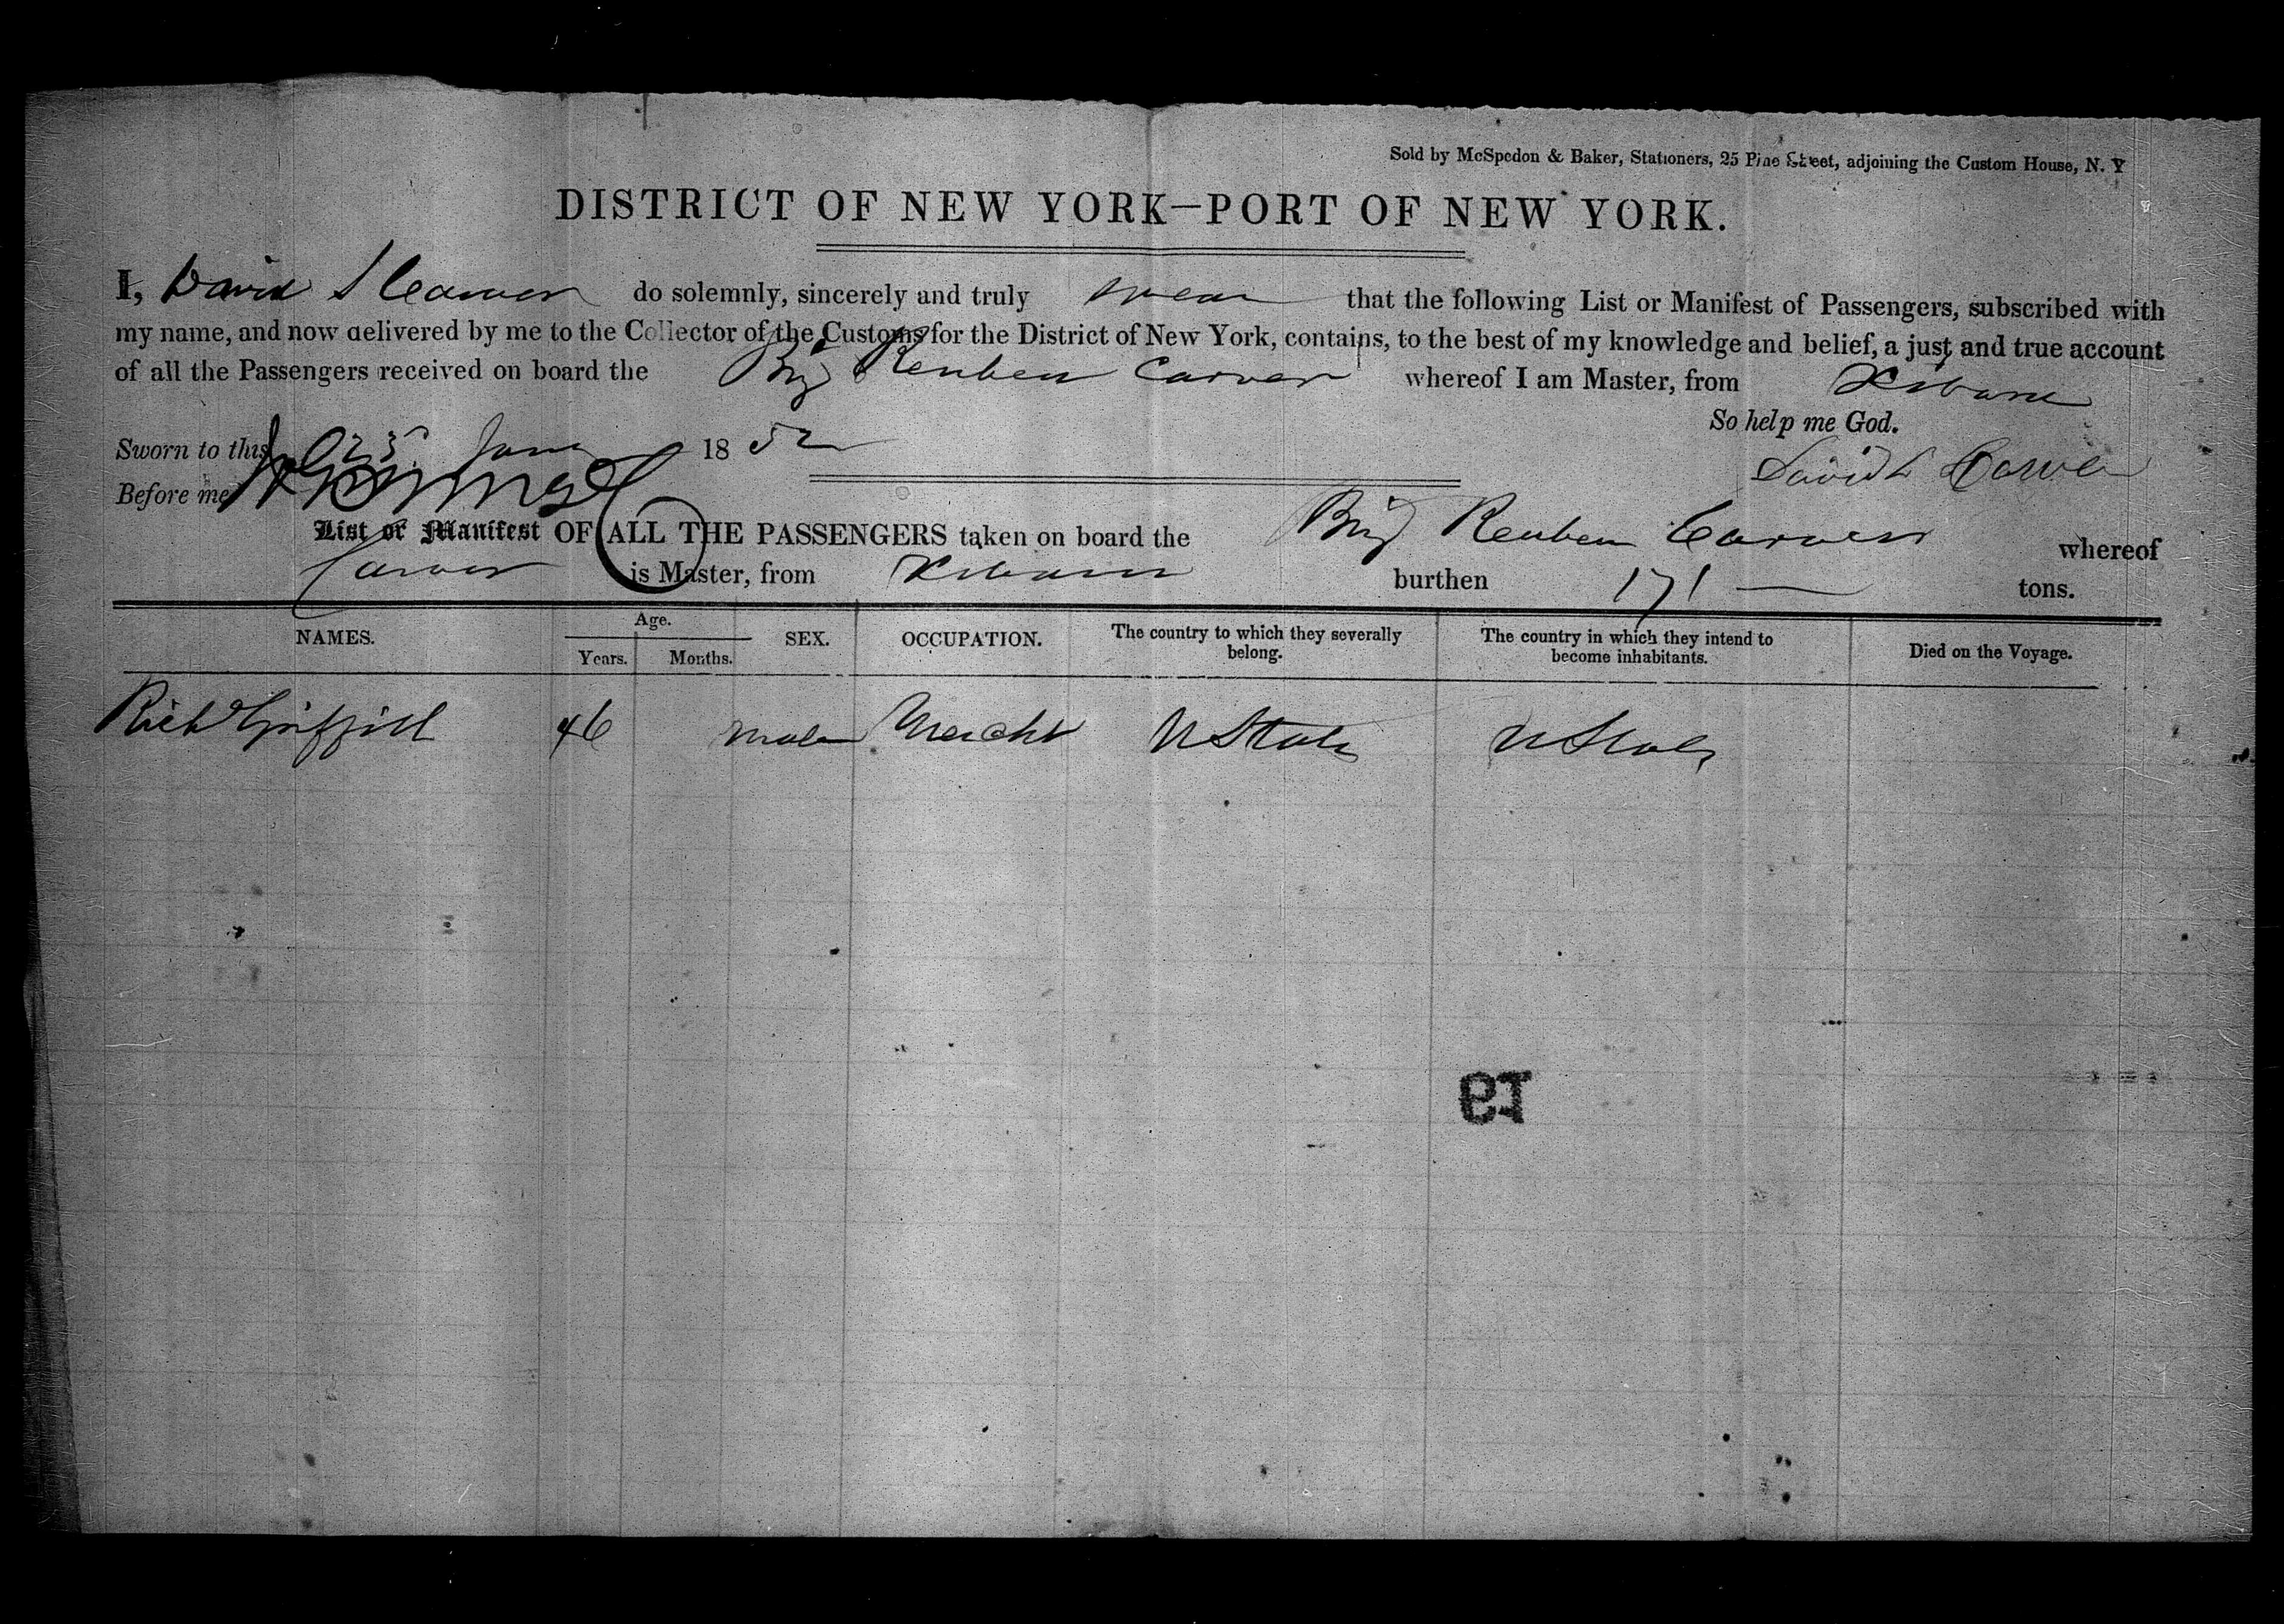 Sold by McSpedon & Baker, Stationers, 25 Pine Street, adjoining the Custom House, N. Y
DISTRICT OF NEW YORK—PORT OF NEW YORK.
I, David S Carver do solemnly, sincerely and truly swear that the following List or Manifest of Passengers, subscribed with
my name, and now delivered by me to the Collector of the Customs for the District of New York, contains, to the best of my knowledge and belief, a just and true account
of all the Passengers received on board the Brig Reuben Carver whereof I am Master, from
So help me God.
Sworn to this 23 1852
David S Carver
Before me
List or Manifest OF ALL THE PASSENGERS taken on board the Brig Reuben Carver whereof
Carver is Master, from burthen 171 tons.
NAMES. Age. Years. Months. SEX. OCCUPATION. The country to which they severally belong. The country in which they intend to become inhabitants. Died on the Voyage.
Richd Griffith 46 male Mercht U States U States
19